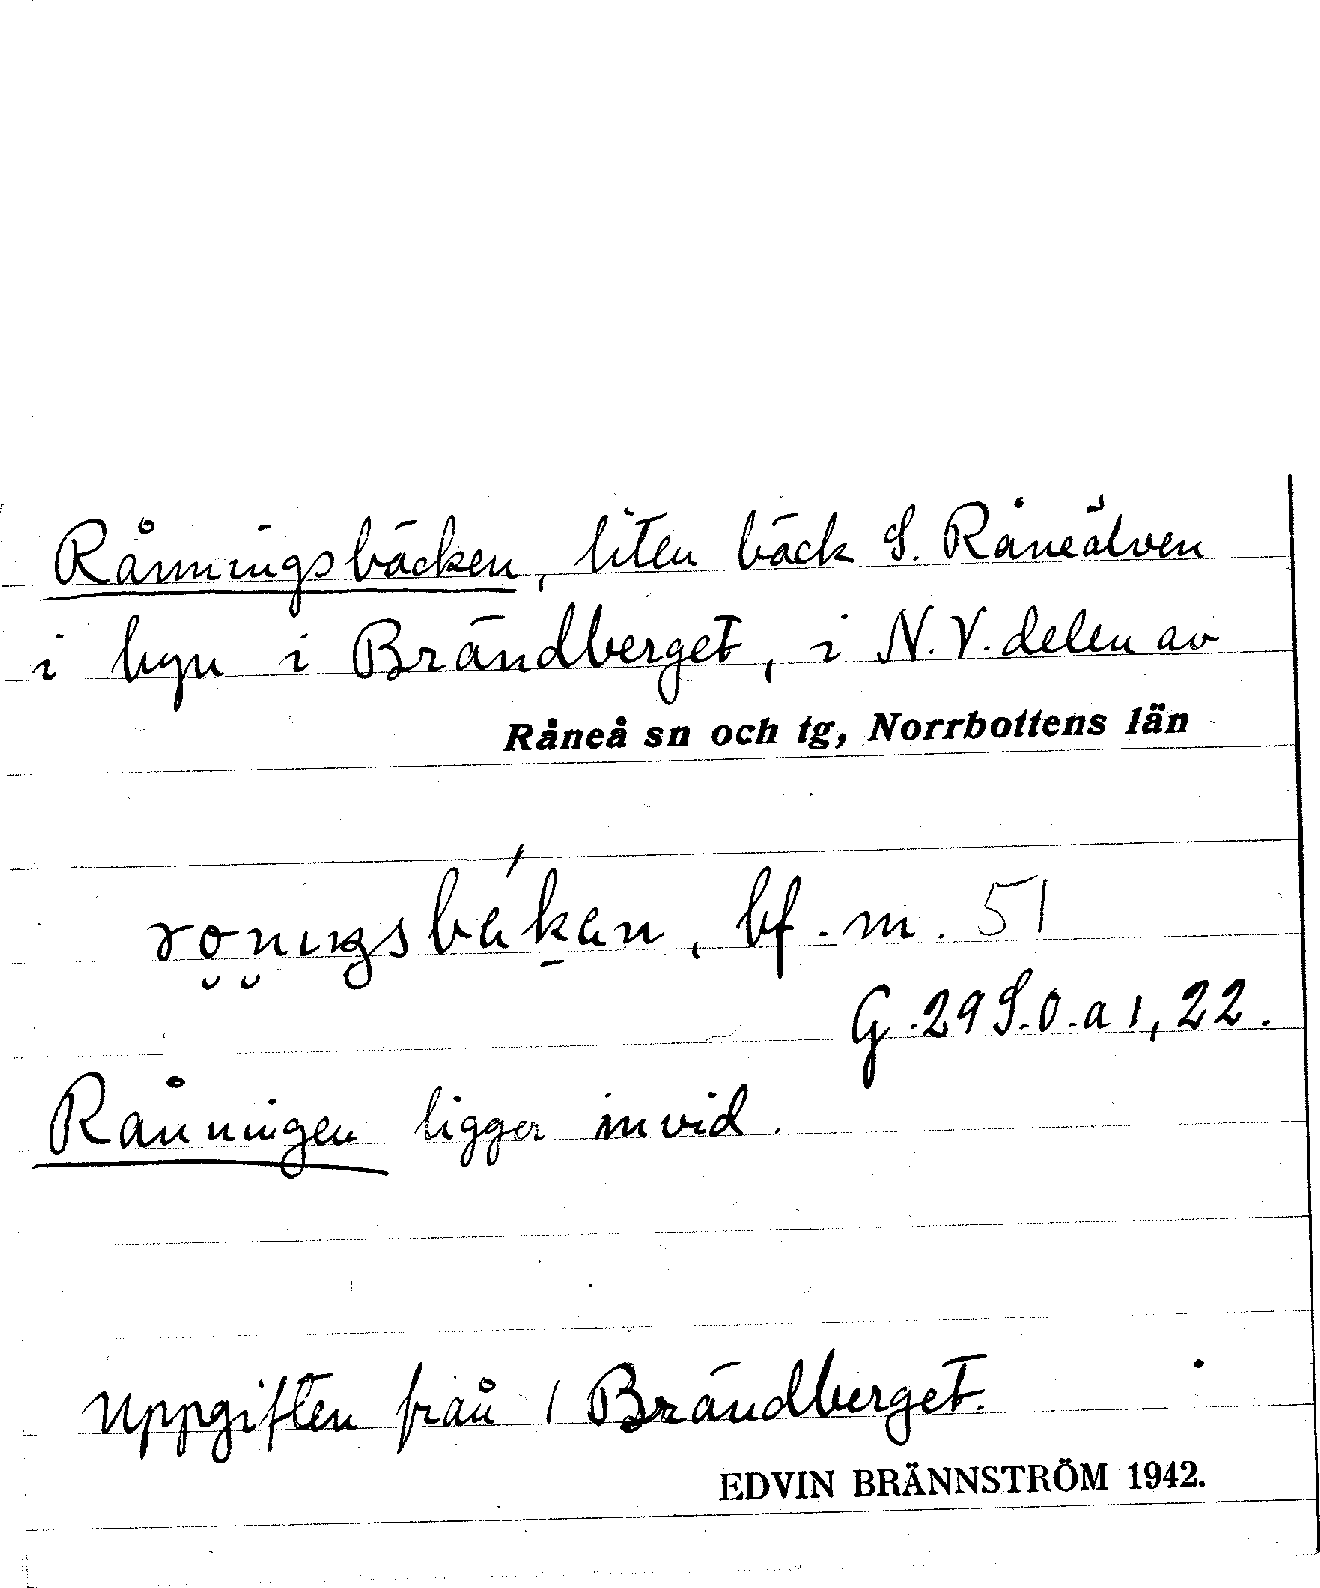 Rånningsbäcken, liten bäck S. Råneälven
i byn i Brändberget, i N.V. delen av
Råneå sn och tg, Norrbottens län
bf. m. 51
G. 29 S.O. a 1, 22.
Rånningen ligger invid.
Uppgiften från i Brändberget.
EDVIN BRÄNNSTRÖM 1942.